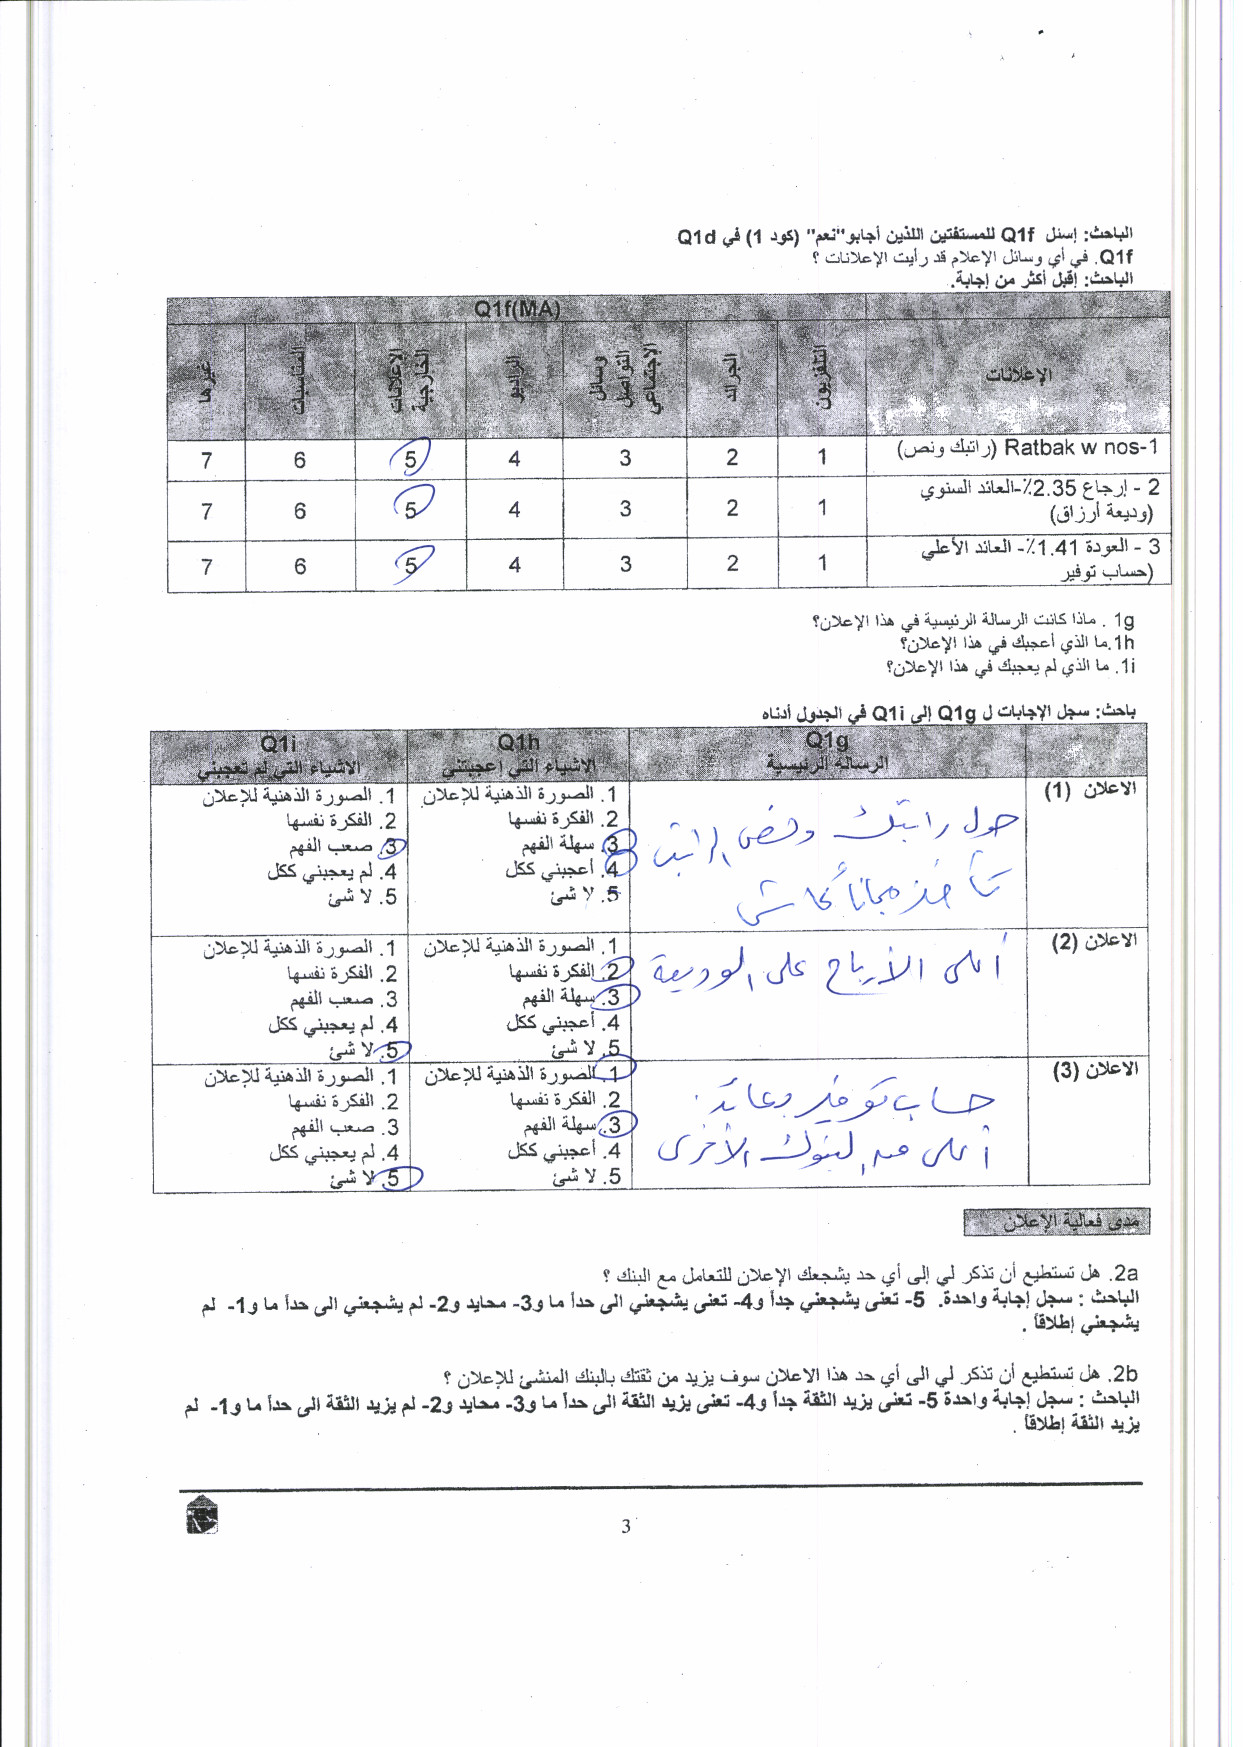 الباحث: إسئل Q1f للمستفتين اللذين أجابو"نعم" (كود 1) في Q1d
Q1f. في أي وسائل الإعلام قد رأيت الإعلانات ؟
الباحث: إقبل أكثر من إجابة.
Q1f(MA)
الإعلانات التلفزيون الجرائد وسائل التواصل الإجتماعي الراديو الإعلانات الخارجية المناسبات غيرها
1-Ratbak w nos (راتبك ونص) 1 2 3 4 5 6 7
2 - إرجاع 2.35٪-العائد السنوي
(وديعة أرزاق) 1 2 3 4 5 6 7
3 - العودة 1.41٪- العائد الأعلي
(حساب توفير 1 2 3 4 5 6 7
1g . ماذا كانت الرسالة الرئيسية في هذا الإعلان؟
1h.ما الذي أعجبك في هذا الإعلان؟
1i. ما الذي لم يعجبك في هذا الإعلان؟
باحث: سجل الإجابات ل Q1g إلى Q1i في الجدول أدناه
Q1g Q1h Q1i
الرسالة الرئيسية الاشياء التي اعجبتني الاشياء التي لم تعجبني
الاعلان (1)
حول راتبك ونص الراتب
تأخذ مجاناً كاش
1. الصورة الذهنية للإعلان
2. الفكرة نفسها
3. سهلة الفهم
4. أعجبني ككل
5. لا شئ
1. الصورة الذهنية للإعلان
2. الفكرة نفسها
3. صعب الفهم
4. لم يعجبني ككل
5. لا شئ
الاعلان (2)
أعلى الأرباح على الوديعة
1. الصورة الذهنية للإعلان
2. الفكرة نفسها
3. سهلة الفهم
4. أعجبني ككل
5. لا شئ
1. الصورة الذهنية للإعلان
2. الفكرة نفسها
3. صعب الفهم
4. لم يعجبني ككل
5. لا شئ
الاعلان (3)
حساب توفير وعائد
أعلى من البنوك الأخرى
1. الصورة الذهنية للإعلان
2. الفكرة نفسها
3. سهلة الفهم
4. أعجبني ككل
5. لا شئ
1. الصورة الذهنية للإعلان
2. الفكرة نفسها
3. صعب الفهم
4. لم يعجبني ككل
5. لا شئ
مدى فعالية الإعلان
2a. هل تستطيع أن تذكر لي إلى أي حد يشجعك الإعلان للتعامل مع البنك ؟
الباحث : سجل إجابة واحدة. 5- تعنى يشجعني جداً و4- تعنى يشجعني الى حداً ما و3- محايد و2- لم يشجعني الى حداً ما و1- لم
يشجعني إطلاقاً .
2b. هل تستطيع أن تذكر لي الى أي حد هذا الاعلان سوف يزيد من ثقتك بالبنك المنشئ للإعلان ؟
الباحث : سجل إجابة واحدة 5- تعنى يزيد الثقة جداً و4- تعنى يزيد الثقة الى حداً ما و3- محايد و2- لم يزيد الثقة الى حداً ما و1- لم
يزيد الثقة إطلاقاً .
3